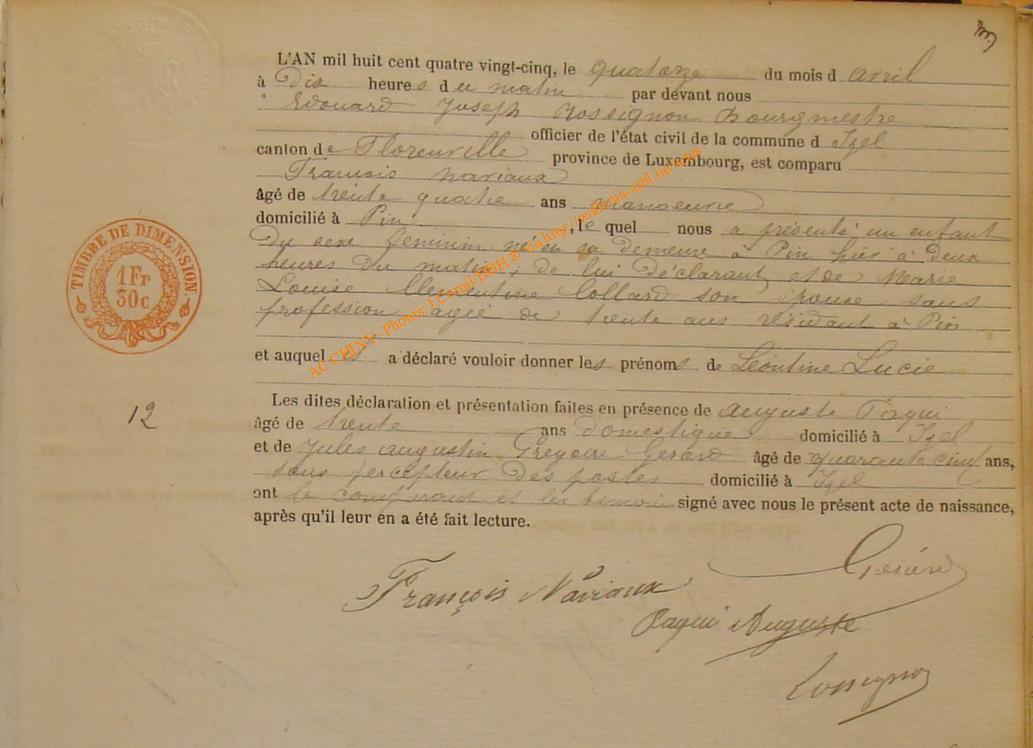 L'AN mil huit cent quatre vingt-cinq, le quatorze du mois d avril
à Dix heures du matin par devant nous
Edouard Joseph Rossignon Bourgmestre
officier de l'état civil de la commune d Izel
canton de Florenville province de Luxembourg, est comparu
François Naviaux
âgé de trente quatre ans manoeuvre
domicilié à Pin, le quel nous a présenté un enfant
du sexe feminin né en sa demeure à Pin hier à deux
heures du matin, de lui déclarant et de Marie
Louise Clementine Collard son épouse sans
profession agée de trente ans résidant à Pin
et auquel il a déclaré vouloir donner les prénoms de Léontine Lucie
12
Les dites déclaration et présentation faites en présence de Auguste Paqui
âgé de trente ans domestique domicilié à Izel
et de Jules Augustin Grégoire Gerard âgé de quarante cinq ans,
sous percepteur des postes domicilié à Izel
ont le comparant et les témoins signé avec nous le présent acte de naissance,
après qu'il leur en a été fait lecture.
Gérard
François Naviaux
Paqui Auguste
Rossignon
TIMBRE DE DIMENSION
1 Fr
30 c